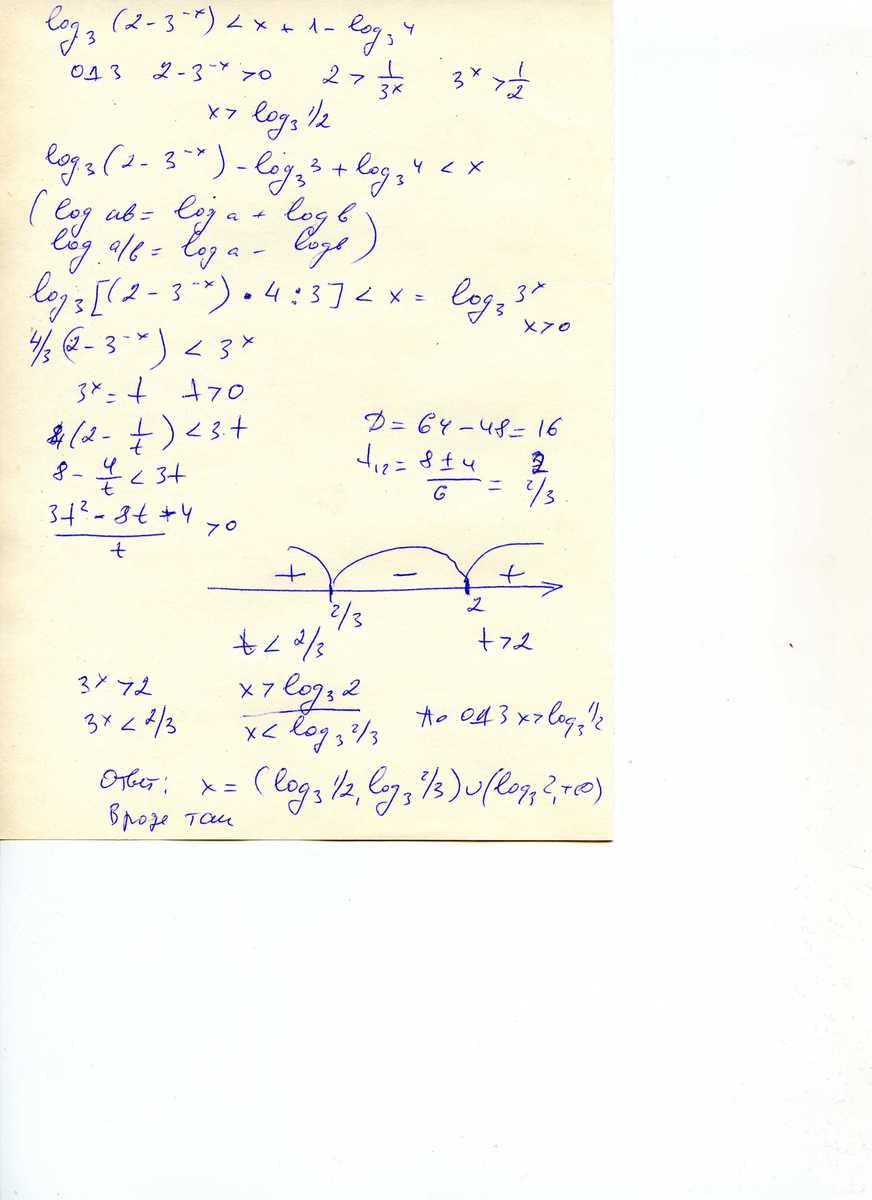 log₃ (2 - 3⁻ˣ) < x + 1 - log₃ 4
ОДЗ 2 - 3⁻ˣ > 0 2 > 1/3ˣ 3ˣ > 1/2
x > log₃ 1/2
log₃ (2 - 3⁻ˣ) - log₃ 3 + log₃ 4 < x
( log ab = log a + log b
log a/b = log a - log b )
log₃ [(2 - 3⁻ˣ) · 4 : 3] < x = log₃ 3ˣ
x > 0
4/3 (2 - 3⁻ˣ) < 3ˣ
3ˣ = t t > 0
4(2 - 1/t) < 3·t D = 64 - 48 = 16
8 - 4/t < 3t t₁₂ = (8 ± 4)/6 = 2 2/3
(3t² - 8t + 4)/t > 0
+ - +
2/3 2
t < 2/3 t > 2
3ˣ > 2 x > log₃ 2
3ˣ < 2/3 x < log₃ 2/3 по ОДЗ x > log₃ 1/2
Ответ: x = (log₃ 1/2, log₃ 2/3) ∪ (log₃ 2, +∞)
Вроде так